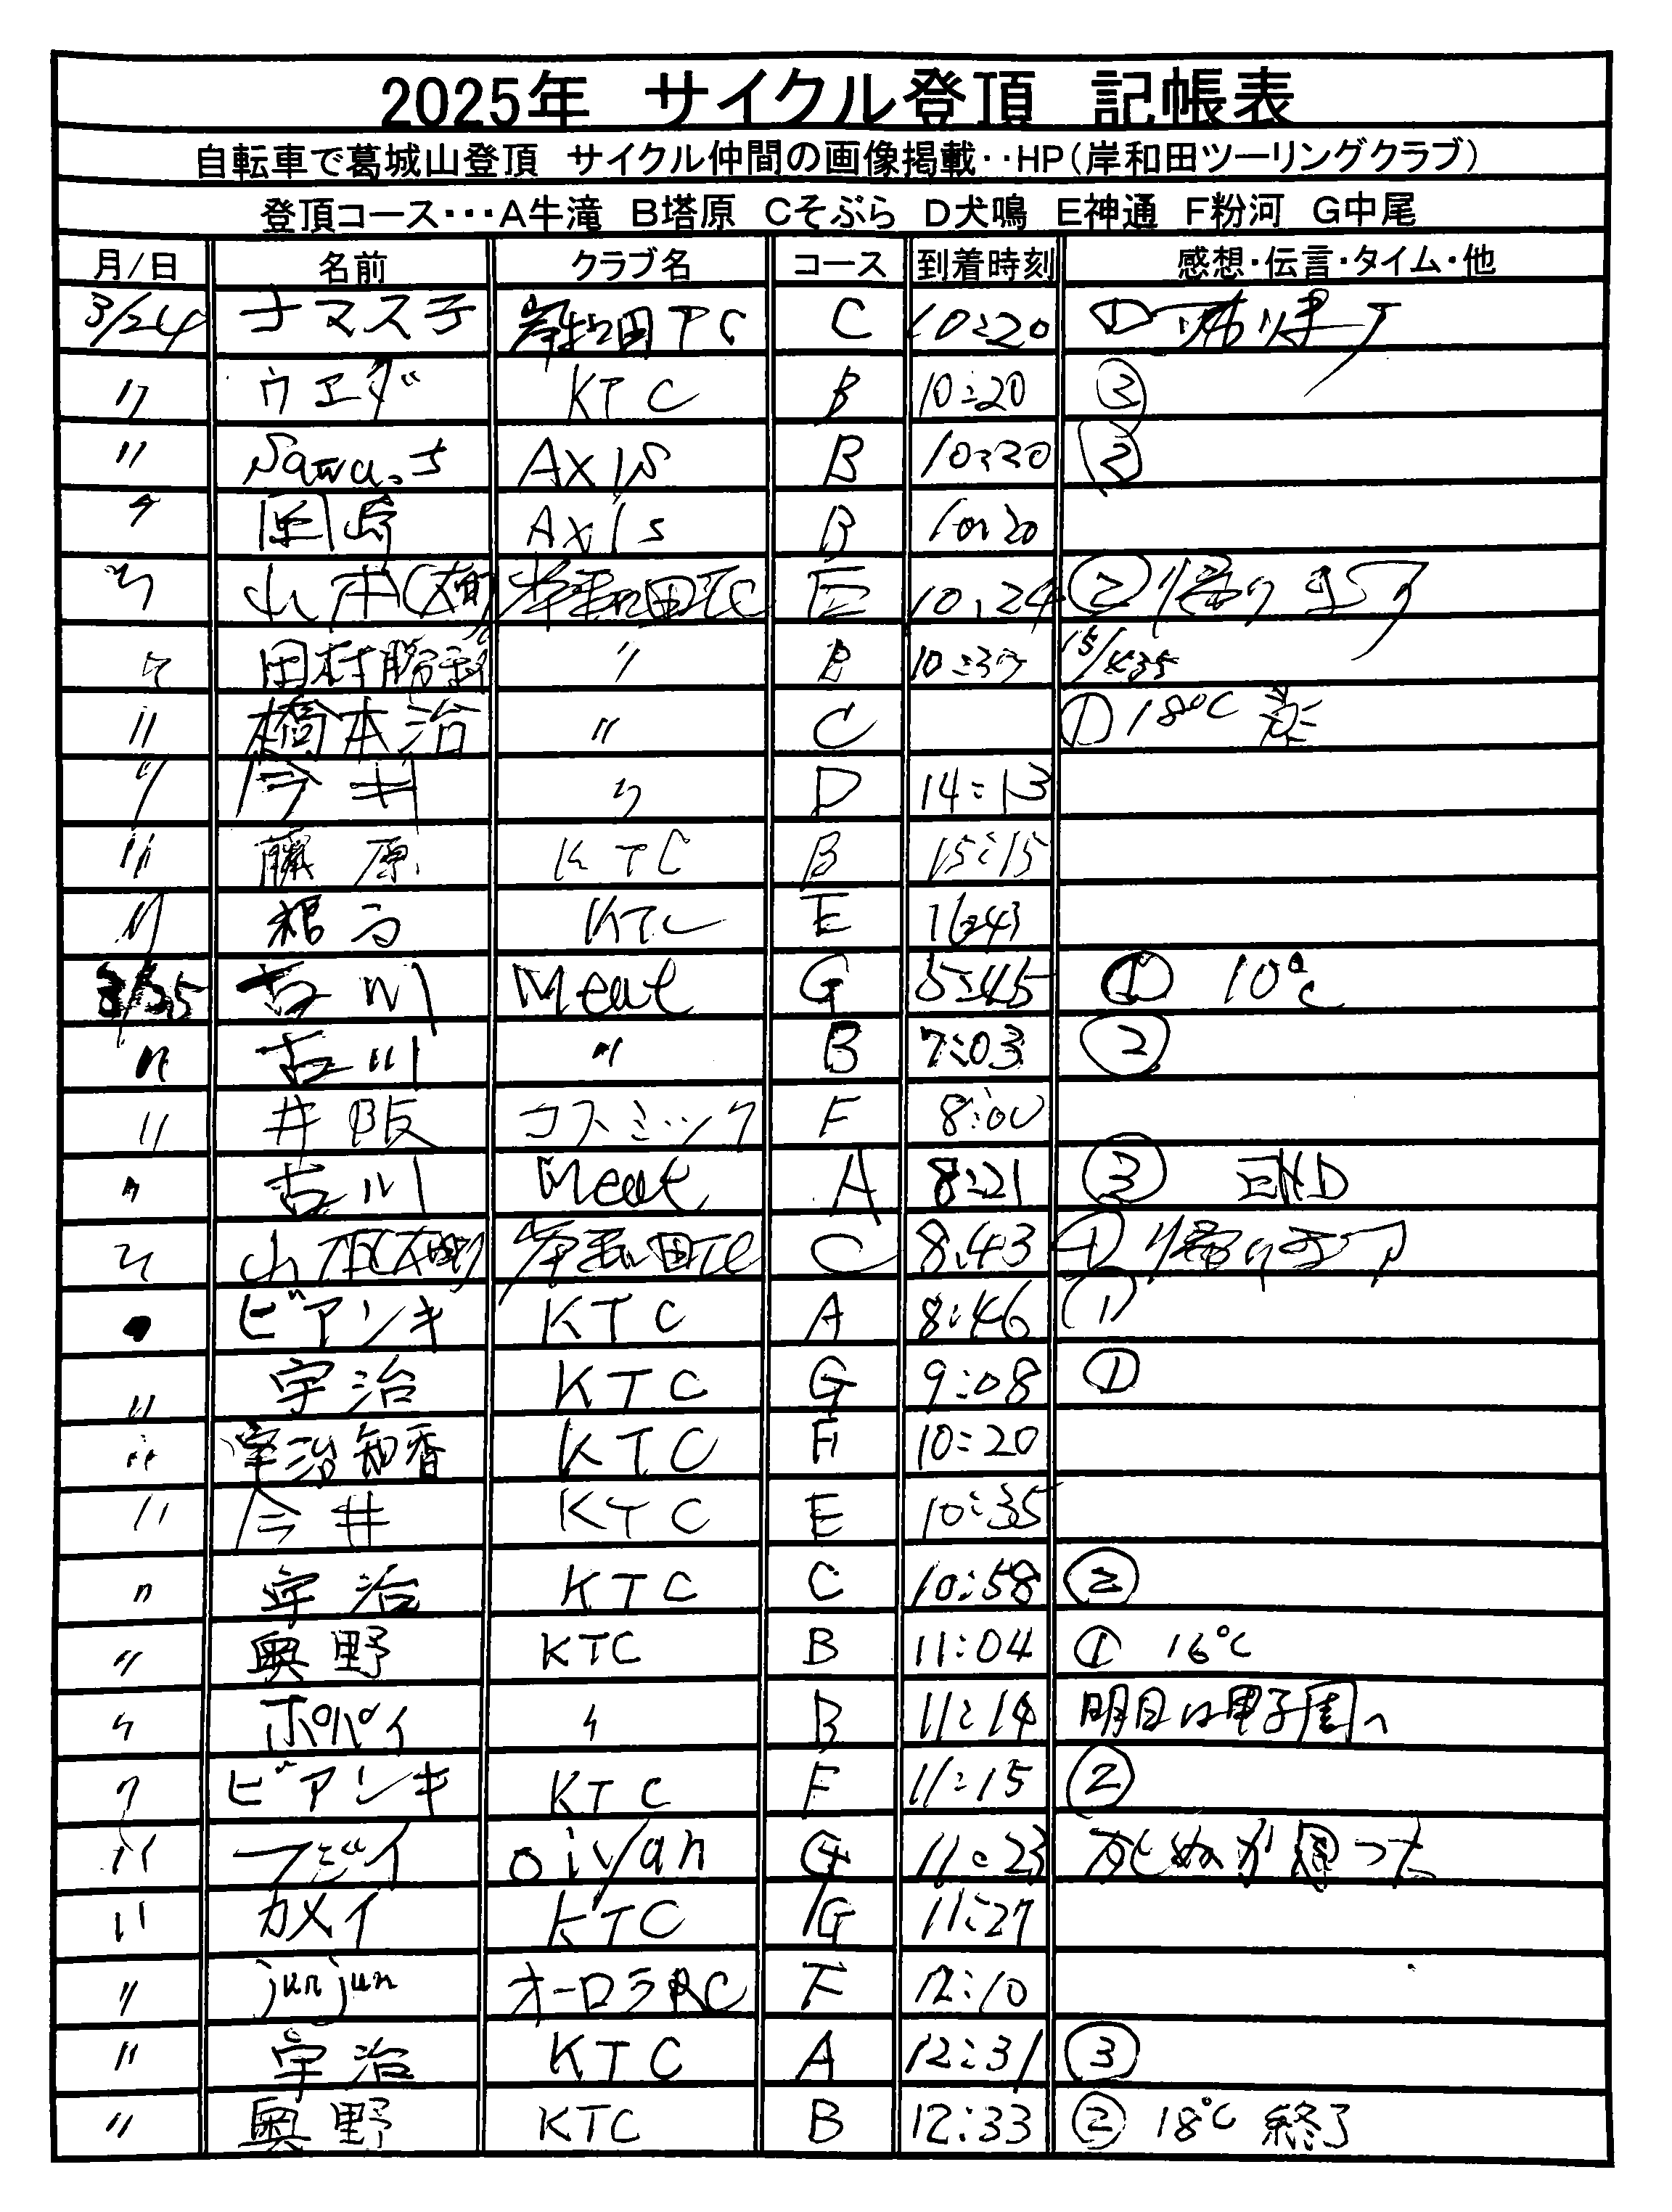 2025年 サイクル登頂 記帳表
自転車で葛城山登頂 サイクル仲間の画像掲載‥HP（岸和田ツーリングクラブ）
登頂コース･･･A牛滝 B塔原 Cそぶら D犬鳴 E神通 F粉河 G中尾
月/日 名前 クラブ名 コース 到着時刻 感想・伝言・タイム・他
3/24 ナマス子 岸和田TC C 10:20 ①
〃 ウエダ KTC B 10:20 ③
〃 Sawa. AXIS B 10:20 ②
〃 岡崎 Axis B 10:20
〃 山本 岸和田TC E 10.24 ② 帰ります
〃 田村 〃 10:37
〃 橋本治 〃 C ① 18℃
〃 今井 〃 D 14:13
〃 藤原 KTC B 15:15
〃 KTC E 16:43
3/25 古川 Meat G 5:45 ① 10℃
〃 古川 〃 B 7:03 ②
〃 井阪 コスミック F 8:00
〃 古川 Meat A 8:21 ③ END
〃 山本 岸和田TC C 8.43 ① 帰ります
ビアンキ KTC A 8:46 ①
〃 宇治 KTC G 9:08 ①
〃 宇治知香 KTC F 10:20
〃 今井 KTC E 10:35
〃 宇治 KTC C 10:58 ②
〃 奥野 KTC B 11:04 ① 16℃
〃 ポパイ 〃 B 11:14 明日は甲子園へ
〃 ビアンキ KTC F 11:15 ②
〃 フジイ oivan G 11:23 死ぬか思った
〃 カメイ KTC G 11:27
〃 junjun オーロラRC F 12:10
〃 宇治 KTC A 12:31 ③
〃 奥野 KTC B 12:33 ② 18℃ 終了